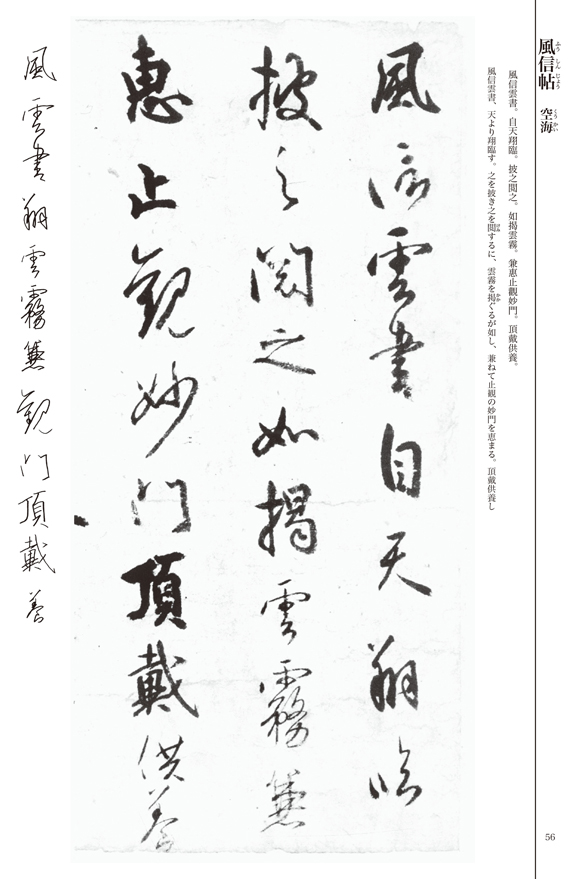 風信帖 空海
ふう しん じょう
くう かい
風信雲書。自天翔臨。披之閲之。如揭雲霧。兼恵止観妙門。頂戴供養。
風信雲書、天より翔臨す。之を披き之を閲するに、雲霧を揭ぐるが如し、兼ねて止観の妙門を恵まる。頂戴供養し
えつ
かか
風信雲書自天翔臨
披之閲之如揭雲霧兼
恵止観妙門頂戴供養
風雲書翔雲霧兼観門頂戴養
56